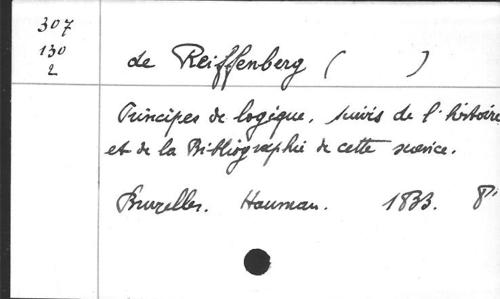 307
130
2
de Reiffenberg ( )
Principes de logique, suivis de l'histoire
et de la Bibliographie de cette science.
Bruxelles. Hauman. 1833. 8°